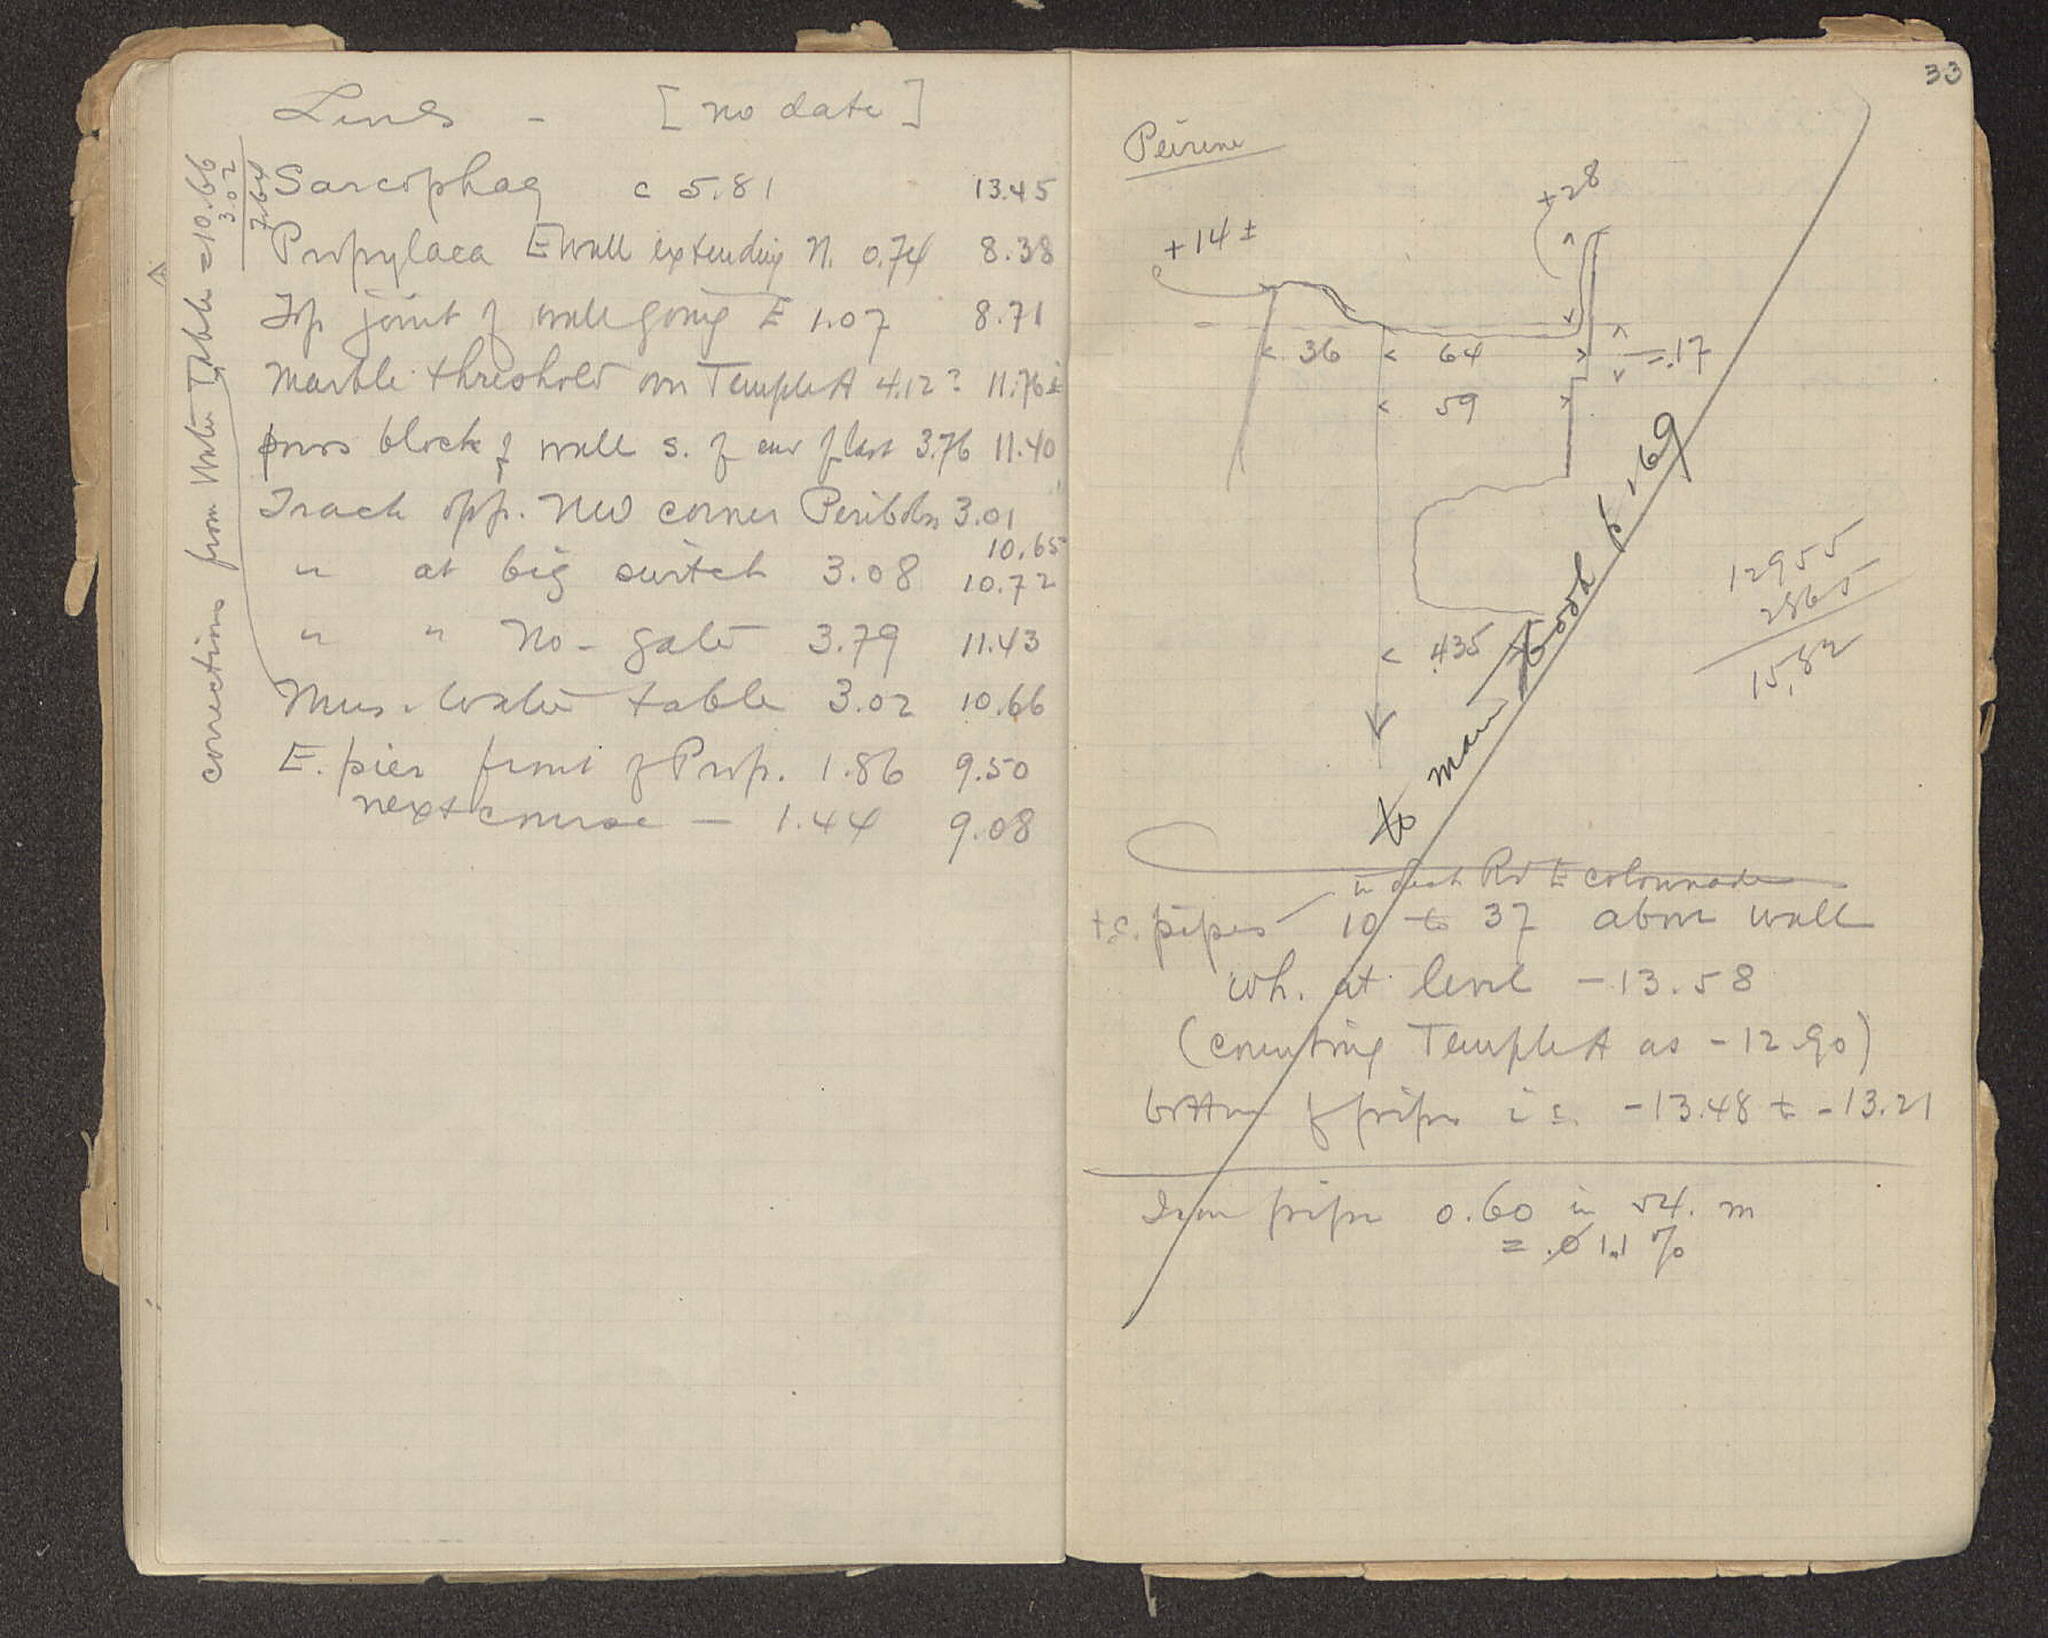 Levels - [no date]
Sarcophag c 5.81 13.45
Propylaea E wall extending N. 0.74 8.38
Top joint of wall going E 1.07 8.71
Marble threshold over Temple A 4.12? 11.76±
poros block of wall S. of end of last 3.76 11.40
Track opp. NW corner Peribolos 3.01
10.65
" at big switch 3.08 10.72
" " No- gate 3.79 11.43
Mus. Water table 3.02 10.66
E. pier front of Prop. 1.86 9.50
next course - 1.44 9.08
corrections from Water Table = 10.66
3.02
7.64
33
Peirene
+28
+14±
36 64
-.17
59
.435
12955
2865
15,82
to main book p. 169
in front Rd E colonnade
t.c. pipes 10 to 37 above wall
wh. at level -13.58
(counting Temple A as -12.90)
bottom of pipes is -13.48 to -13.21
Iron pipe 0.60 in 54. m
= .01.1 %